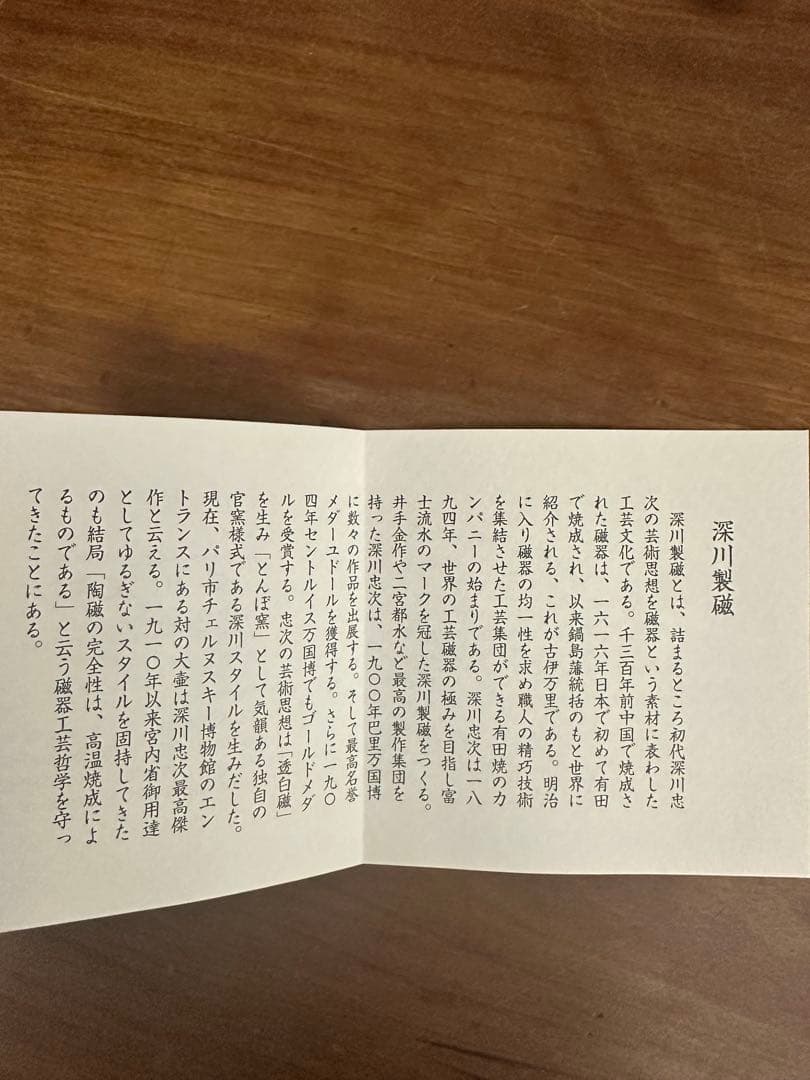 深川製磁
深川製磁とは、詰まるところ初代深川忠
次の芸術思想を磁器という素材に表わした
工芸文化である。千三百年前中国で焼成さ
れた磁器は、一六一六年日本で初めて有田
で焼成され、以来鍋島藩統括のもと世界に
紹介される、これが古伊万里である。明治
に入り磁器の均一性を求め職人の精巧技術
を集結させた工芸集団ができる有田焼のカ
ンパニーの始まりである。深川忠次は一八
九四年、世界の工芸磁器の極みを目指し富
士流水のマークを冠した深川製磁をつくる。
井手金作や二宮都水など最高の製作集団を
持った深川忠次は、一九〇〇年巴里万国博
に数々の作品を出展する。そして最高名誉
メダーユドールを獲得する。さらに一九〇
四年セントルイス万国博でもゴールドメダ
ルを受賞する。忠次の芸術思想は「透白磁」
を生み「とんぼ窯」として気韻ある独自の
官窯様式である深川スタイルを生みだした。
現在、パリ市チェルヌスキー博物館のエン
トランスにある対の大壷は深川忠次最高傑
作と云える。一九一〇年以来宮内省御用達
としてゆるぎないスタイルを固持してきた
のも結局「陶磁の完全性は、高温焼成によ
るものである」と云う磁器工芸哲学を守っ
てきたことにある。